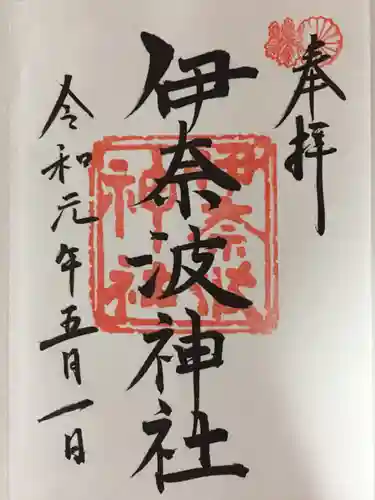 奉拝
伊奈波神社
伊奈波
神社
令和元年五月一日